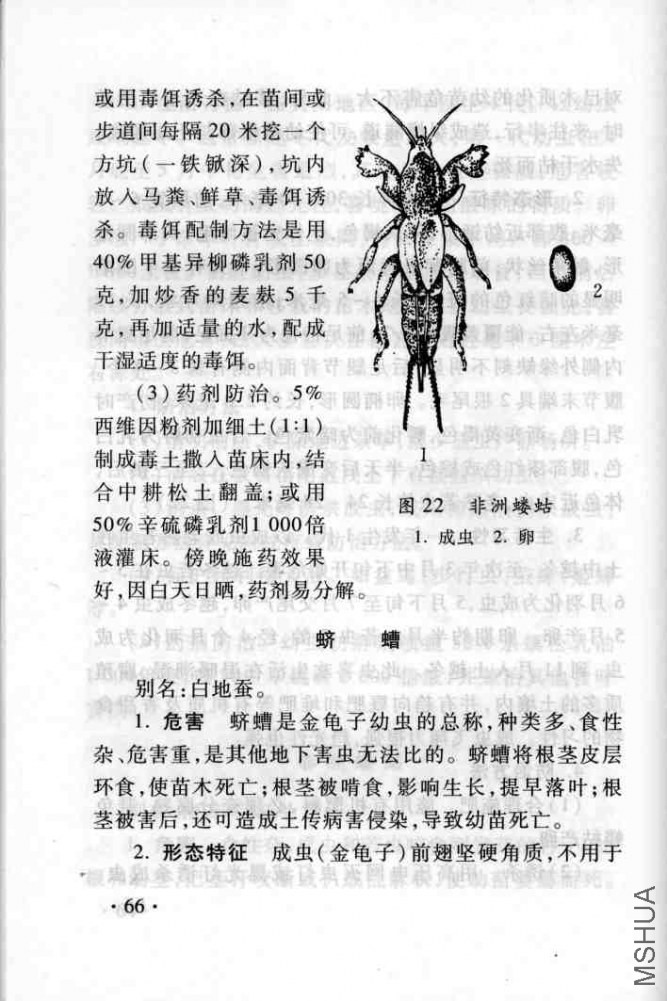 或用毒饵诱杀,在苗间或
步道间每隔20米挖一个
方坑(一铁锨深),坑内
放入马粪、鲜草、毒饵诱
杀。毒饵配制方法是用
40%甲基异柳磷乳剂50
克,加炒香的麦麸5千
克,再加适量的水,配成
干湿适度的毒饵。
(3)药剂防治。5%
西维因粉剂加细土(1:1)
制成毒土撒入苗床内,结
合中耕松土翻盖;或用
50%辛硫磷乳剂1 000倍
液灌床。傍晚施药效果
好,因白天日晒,药剂易分解。
2
1
图22 非洲蝼蛄
1. 成虫 2. 卵
蛴 螬
别名:白地蚕。
1. 危害 蛴螬是金龟子幼虫的总称,种类多、食性
杂、危害重,是其他地下害虫无法比的。蛴螬将根茎皮层
环食,使苗木死亡;根茎被啃食,影响生长,提早落叶;根
茎被害后,还可造成土传病害侵染,导致幼苗死亡。
2. 形态特征 成虫(金龟子)前翅坚硬角质,不用于
·66·
MSHUA